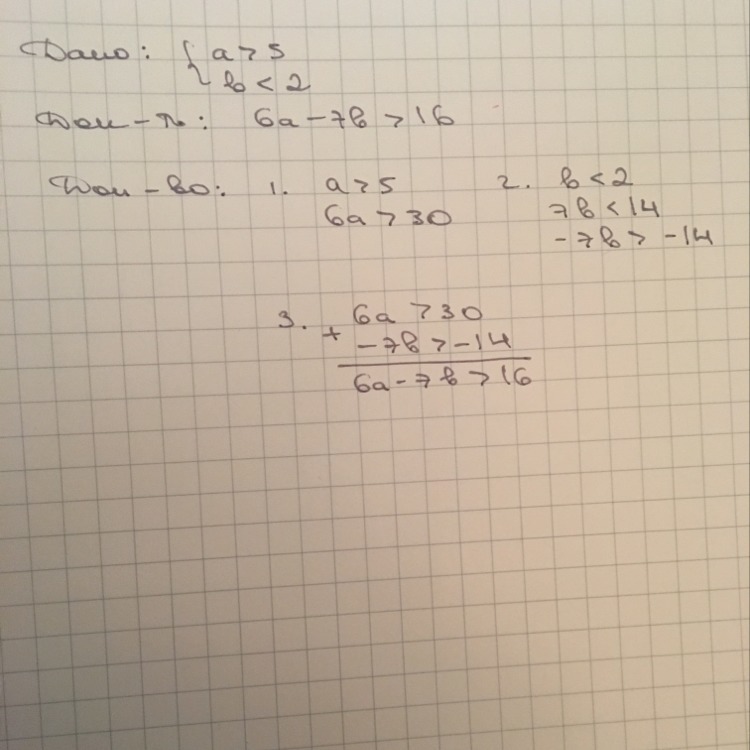 Дано: { a > 5
b < 2
Док-ть: 6a - 7b > 16
Док-во: 1. a > 5
6a > 30
2. b < 2
7b < 14
-7b > -14
3. + 6a > 30
-7b > -14
6a - 7b > 16